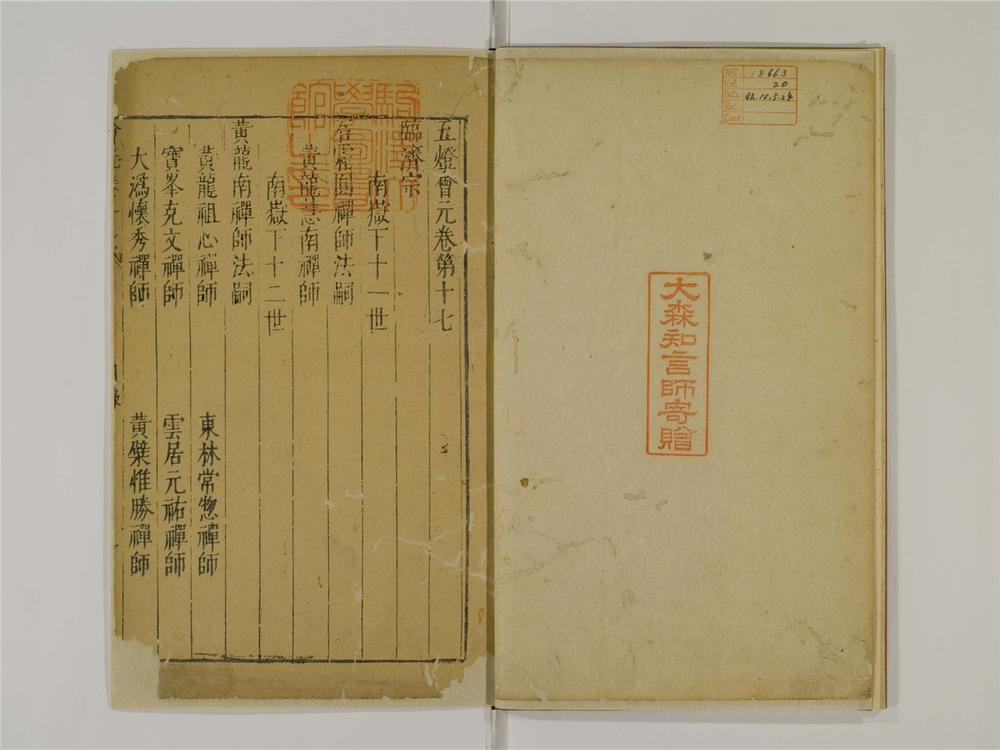 No. 18663
20
大森知言師寄贈
五燈會元卷第十七
臨濟宗
南嶽下十一世
霜圓禪師法嗣
黃龍慧南禪師
南嶽下十二世
黃龍南禪師法嗣
黃龍祖心禪師
東林常惣禪師
寶峯克文禪師
雲居元祐禪師
大溈懷秀禪師
黃檗惟勝禪師